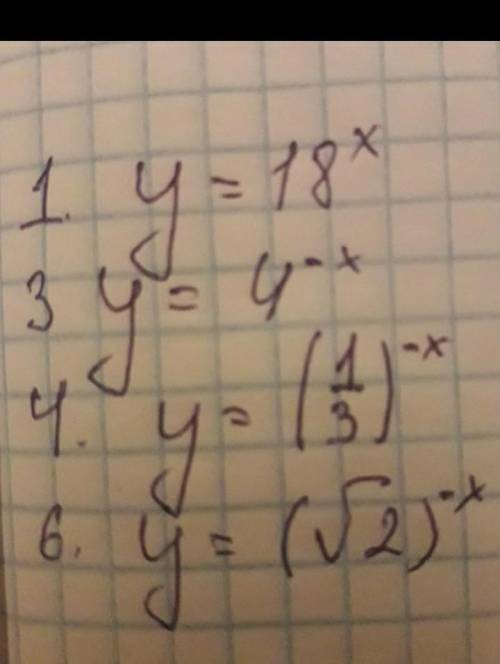 1. y = 18^x
3 y = 4^-x
4. y = (1/3)^-x
6. y = (√2)^-x